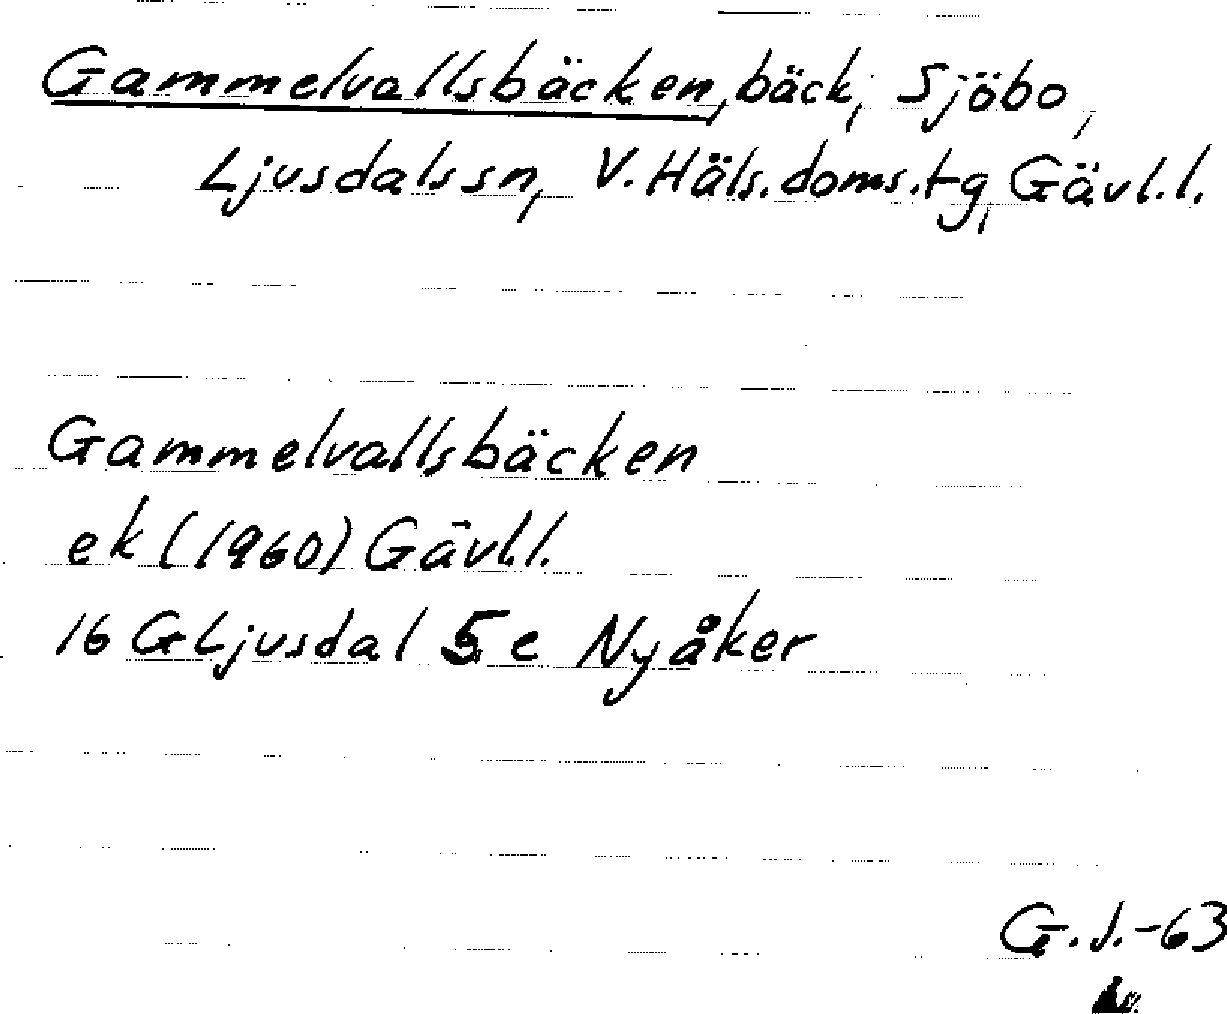 Gammelvallsbäcken, bäck, Sjöbo,
Ljusdals sn, V. Häls. doms. tg, Gävl. l.
Gammelvallsbäcken
ek (1960) Gävl. l.
16 G Ljusdal 5 e Nyåker
G. J. -63